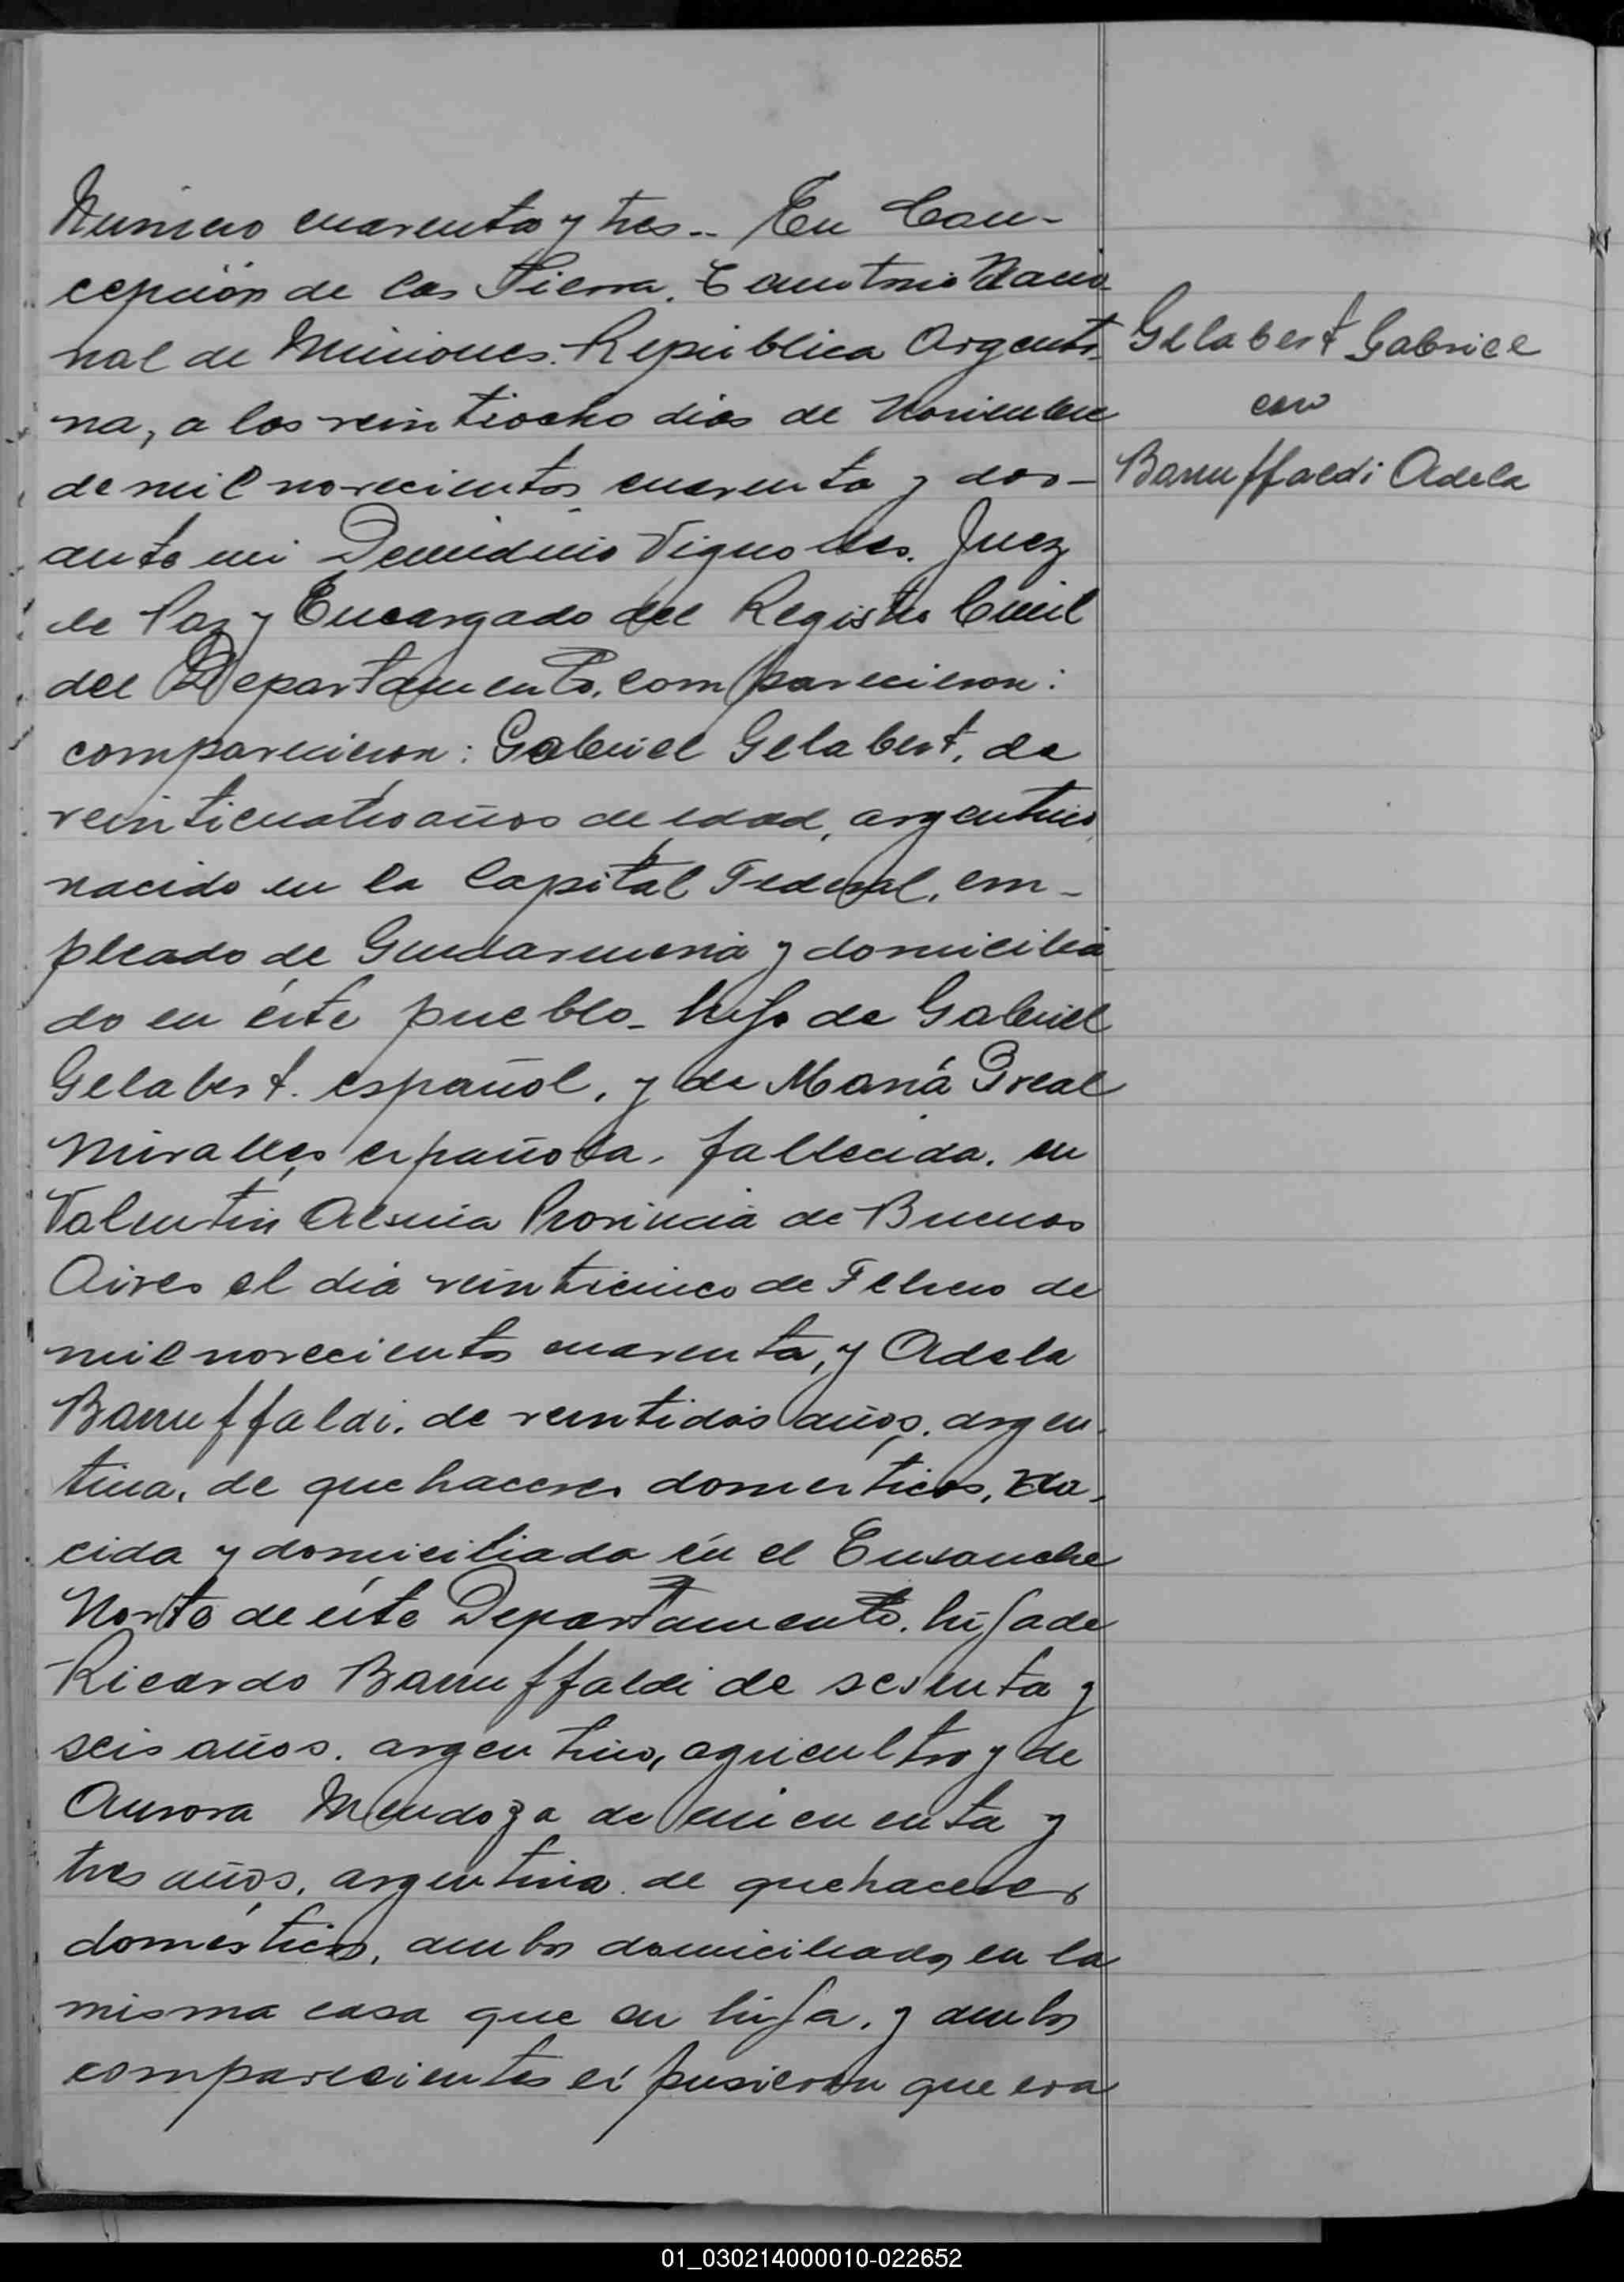 Numero cuarenta y tres.- En Con-
cepción de la Sierra. Territorio Nacio-
nal de Misiones. República Argenti-
na, a los veintiocho dias de Noviembre
de mil novecientos cuarenta y dos-
ante mi Vignolles. Juez
de Paz y Encargado del Registro Civil
del Departamento. comparecieron:
comparecieron: Gabriel Gelabert, de
veinticuatro años de edad, argentino,
nacido en la Capital Federal, em-
pleado de Gendarmeria y domicilia-
do en éste pueblo- hijo de Gabriel
Gelabert. español, y de María
Miralles española, fallecida. en
Valentín Alsina Provincia de Buenos
Aires el día veinticinco de Febrero de
mil novecientos cuarenta, y Adela
Barruffaldi. de veintidós años. argen-
tina, de quehaceres domesticos, na-
cida y domiciliada én el Ensanche
Norte de éste Departamento. hija de
Ricardo Barruffaldi de sesenta y
seis años. argentino, agricultro y de
Aurora Mendoza de cincuenta y
tres años, argentina de quehaceres
domésticos, ambos domiciliados en la
misma casa que su hija, y ambos
comparecientes expusieron que era
Gelabert Gabriel
con
Barruffaldi Adela
01_030214000010-022652